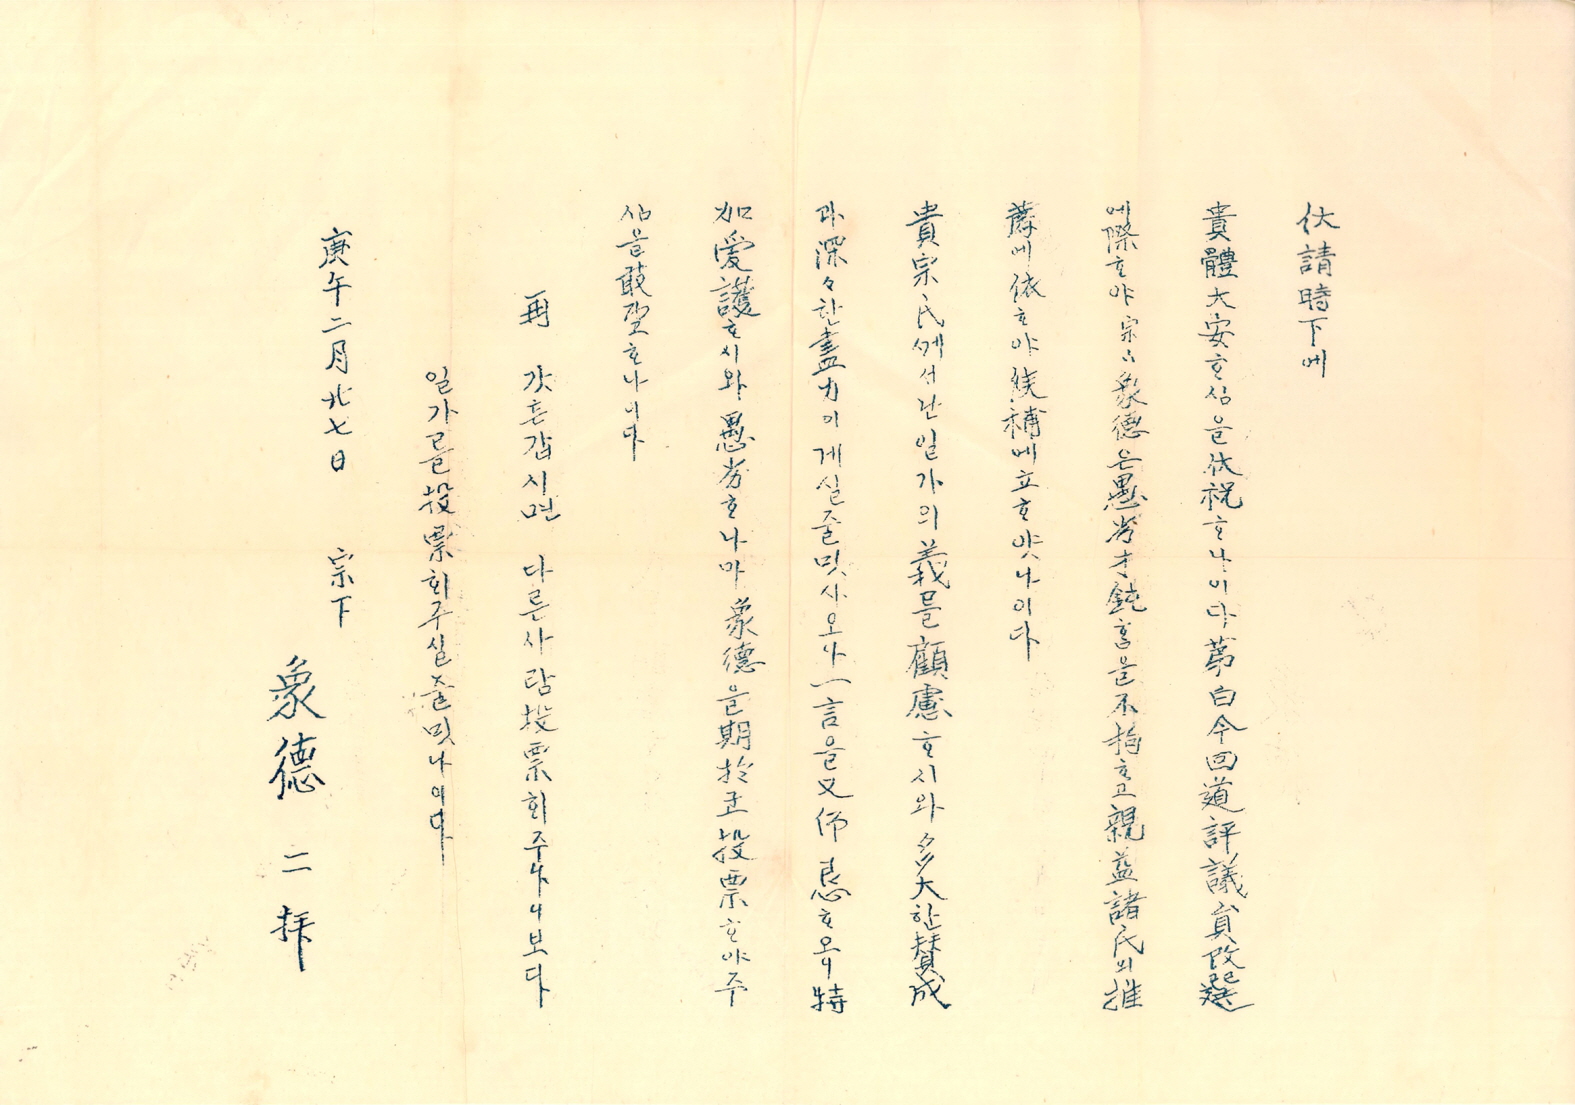 伏請時下에
貴體大安ᄒᆞ심을伏祝ᄒᆞ나이다第白今回道評議員改選
에際ᄒᆞ야宗下象德은愚劣才鈍ᄒᆞᆷ을不拘ᄒᆞ고親益諸氏의推
薦에依ᄒᆞ야候補에立ᄒᆞ얏나이다
貴宗氏ᄭᅦ서난일가의義를顧慮ᄒᆞ시와多大한賛成
과深々한盡力이게실줄밋사오나一言을又仰恳ᄒᆞ오니特
加愛護ᄒᆞ시와愚劣ᄒᆞ나마象德을期於코投票ᄒᆞ야주
심을敢望ᄒᆞ나이다
再 갓흔갑시면 다른사람投票회주나니보다
일가를投票회주실줄밋나이다
庚午二月卄七日 宗下
象德 二拜